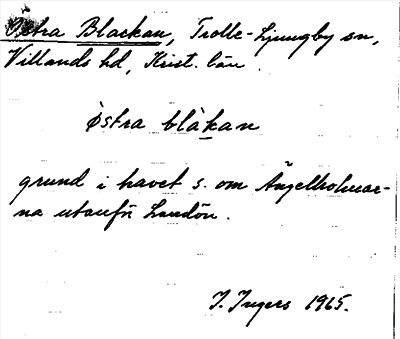 Östra Blackan, Trolle-Ljungby sn,
Villands hd, Krist. län.
östra blàkan
grund i havet s. om Ängelholmar-
na utanför Landön.
I. Ingers 1965.